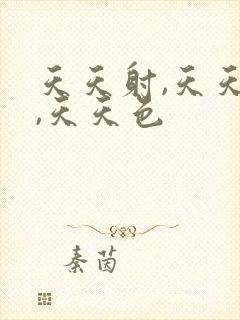 天天射,天天
,天天色
秦茵